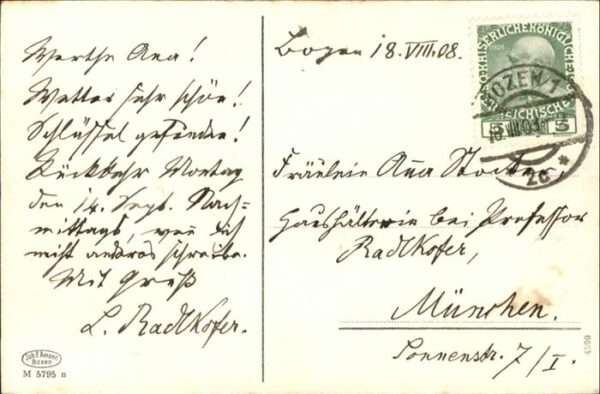 Werthe Anna!
Wetter sehr schön!
Schlüssel gefunden!
Rückkehr Montag
den 14. Sept. Nach-
mittags, wenn ich
nicht anders schreibe.
Mit Gruß
L. Radlkofer.
Joh. F. Amonn
Bozen
M 5795 n
Bozen 18.VIII.08.
KAISERLICHE KÖNIGLICHE
ÖSTERREICHISCHE
5 5
BOZEN/1
18.VIII.08
2c *
Fräulein Anna
Haushälterin bei Professor
Radlkofer,
München.
Sonnenstr. 7/I.